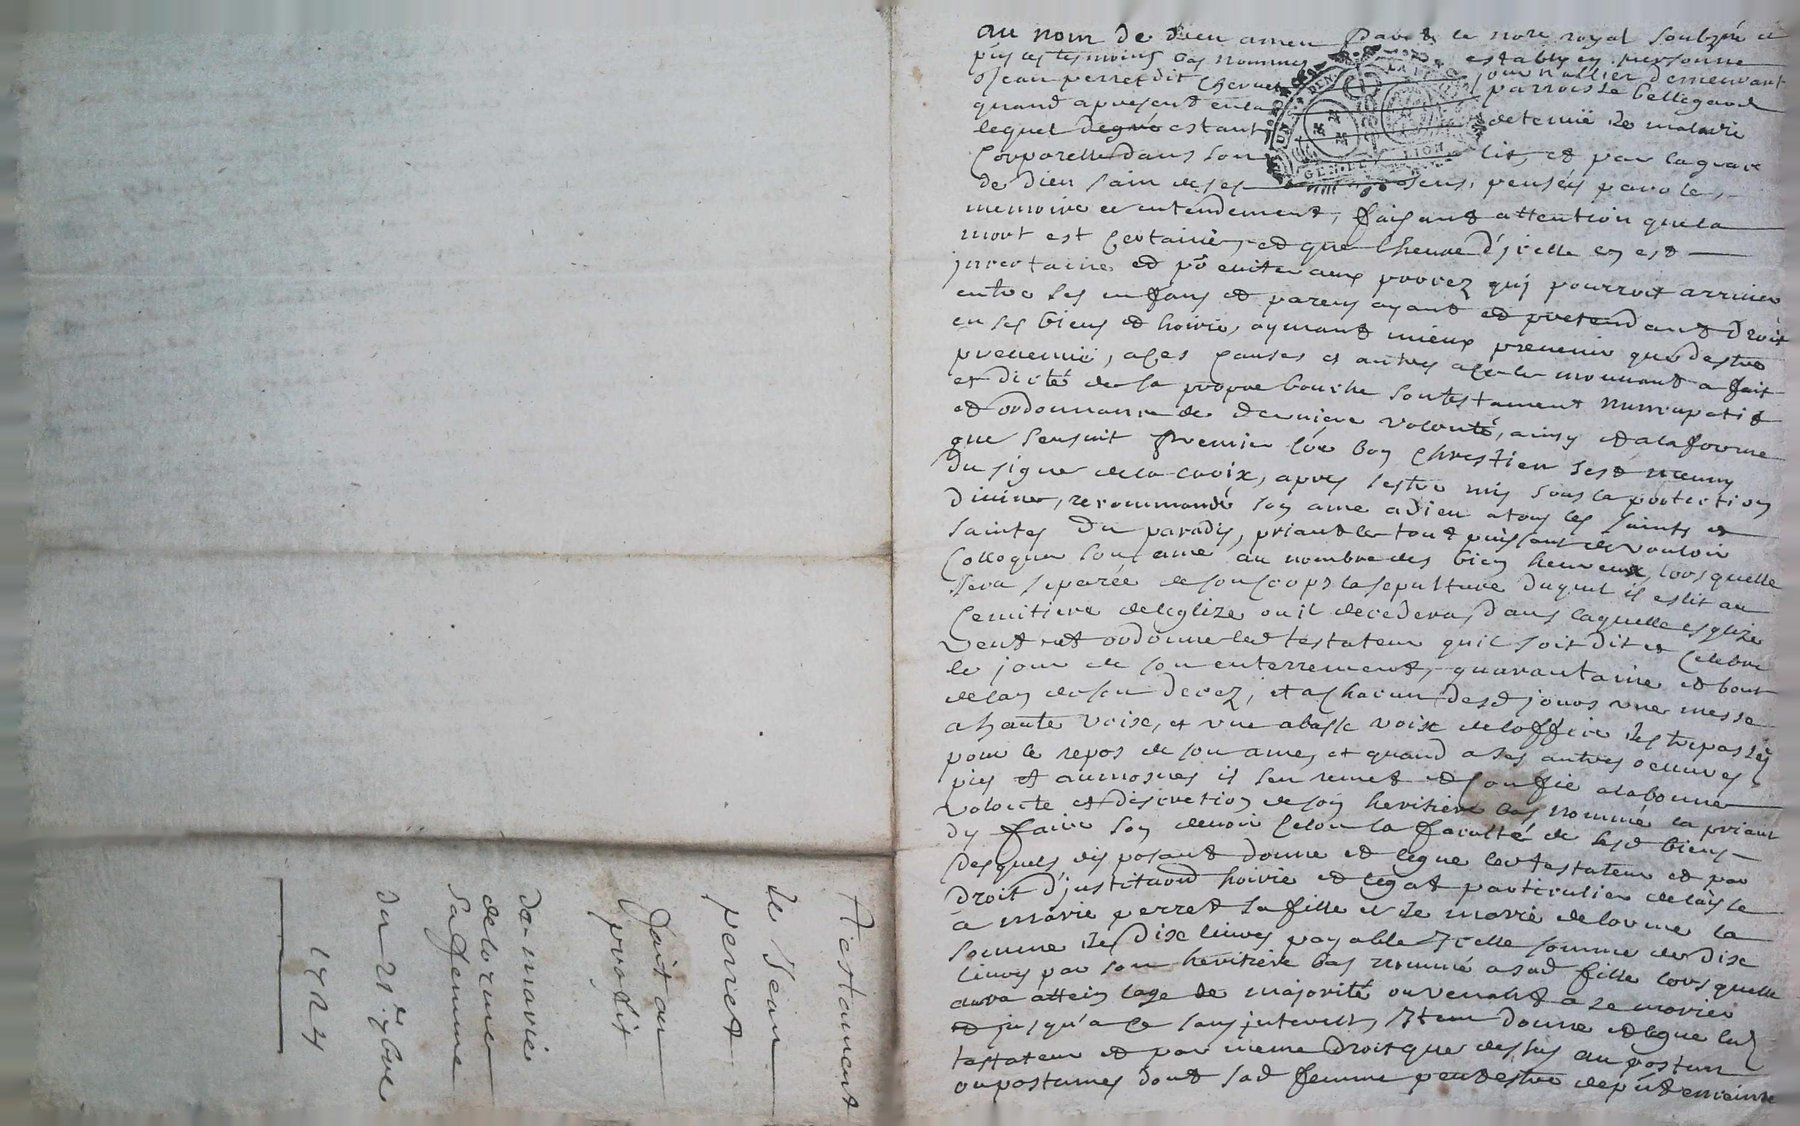 au nom de dieu amen Pardt le nore royal soubzné et
pns les tesmoins bas nommes estably en personne
Jean perret dit Chervet journallier demeurant
quand apresent en la parroisse bellegarde
lequel de gré estant detenü de maladie
Corporelle dans son lit, et par la grace
de Dieu sain de ses sens, pensées parolles,
memoire et entendement, faisant attention que la
mort est Certaine, et que lheure d'jcelle en est
jncertaine et pr eviter aux procez quj pourroit arriver
entre ses enfans et parens ayant et pretendant Droit
en ses biens et hoirie, aymant mieux prevenir que destre
prevenü, a ces Causes et autres a ce le mouvant a fait
et dicté de sa propre bouche son testament nuncupatif
et ordonnance de derniere volonté, ainsy et a la forme
que sensuit Premier Côe bon Chrestien sest muny
du signe de la croix, apres sestre mis sous la protection
divine, recommandé son ame a dieu a tous les saints et
saintes du paradis, priant le tout puissant de vouloir
Colloquer son ame au nombre des bien heureux, lors quelle
sera separée de son corps la sepulture duquel il eslit au
Cemitiere de leglize ou il decedera, dans laquelle esglize
veut et ordonne led testateur quil soit dit et Celebré
le jour de son enterrement, quarantaine et bout
de lan de son decez, et a chacun desd jours une messe
a haute voixe, et une a basse voix de loffice des trepassés
pour le repos de son ame, et quand a ses autres oeuvres
pies et aumosnes il sen remet et Confie a la bonne
volonte et discretion de son heritiere bas nommé la priant
dy faire son devoir selon la faculté de sesd biens
Desquels disposant donne et legue led testateur et par
Droit d'justitaond hoirie et legat particulier delaisse
à marie perret sa fille et de marie delorme la
somme de Dixe livres payable Jcelle somme de Dix
livres par son heritiere bas nommé a sad fille lors quelle
aura attein lage de majorité ou venant a se marier
et jusqu'a ce sans jnterest, Jtem donne et legue led
testateur et par meme Droit que dessus au postum
ou postumes dont sad femme peut estre de pnt enceinte
Testament
de Jean
perret
fait au
profit
de marie
delorme
sa femme
du 21e 9bre
1724